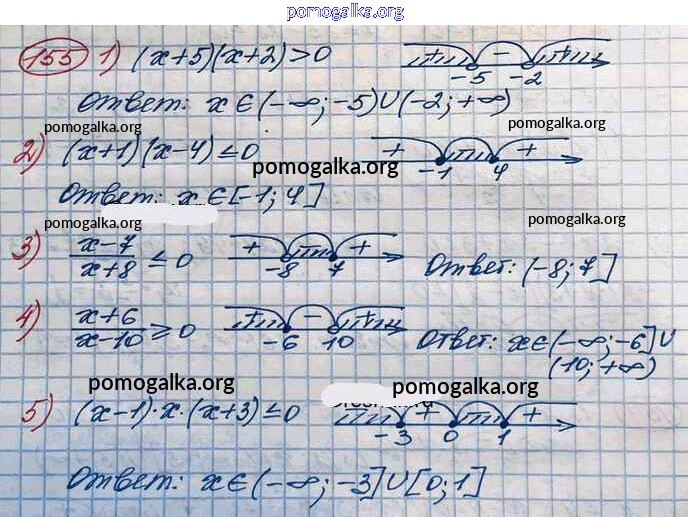 pomogalka.org
155 1) (x+5)(x+2)>0 + − + -5 -2
Ответ: x∈(-∞;-5)∪(-2;+∞)
pomogalka.org pomogalka.org
2) (x+1)(x-4)≤0 + + -1 4
pomogalka.org
Ответ: x∈[-1;4]
pomogalka.org pomogalka.org
3) x-7/x+8 ≤ 0 + + -8 7 Ответ: (-8;7]
4) x+6/x-10 ≥ 0 + − + -6 10 Ответ: x∈(-∞;-6]∪
(10;+∞)
pomogalka.org pomogalka.org
5) (x-1)·x·(x+3)≤0 + + -3 0 1
Ответ: x∈(-∞;-3]∪[0;1]